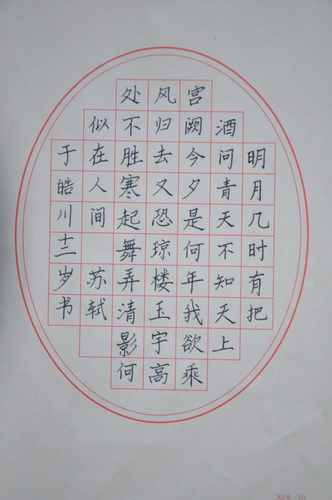 明月几时有把
酒问青天不知天上
宫阙今夕是何年我欲乘
风归去又恐琼楼玉宇高
处不胜寒起舞弄清影何
似在人间 苏轼
于皓川十二岁书